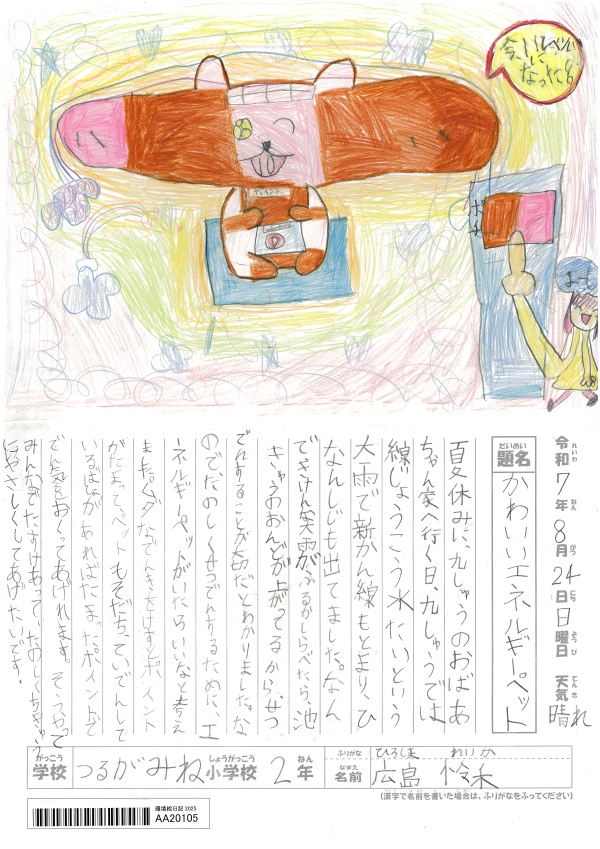 今、いいべんに
なった!8
ポイント
ポチ
令和7年8月24日日曜日 天気 晴れ
れいわ ねん がつ にち ようび てんき
だいめい
題名 かわいいエネルギーペット
夏休みに、九しゅうのおばあ
ちゃん家へ行く日、九しゅうでは
線じょうこう水たいという
大雨で新かん線もとまり、ひ
なんしじも出てました。なん
できけんな大雨がふるかしらべたら、池
きゅうのおんどが上がってるから、せつ
でんすることが大切だとわかりました。な
のでたのしくせつでんするために、エ
ネルギーペットがいたらいいなと考え
ました。ムダなでんきをけすとポイント
がたまって、ペットもそだち、ていでんして
いるばしょがあればたまったポイントで
でん気をおくってあげれます。そうやって
みんなでたすけあって、たのしくちきゅう
にやさしくしてあげたいです。
がっこう しょうがっこう ねん
学校 つるがみね小学校 2年
ふりがな ひろしま れいか
なまえ
名前 広島 怜禾
(漢字で名前を書いた場合は、ふりがなをふってください)
環境絵日記 2025
AA20105